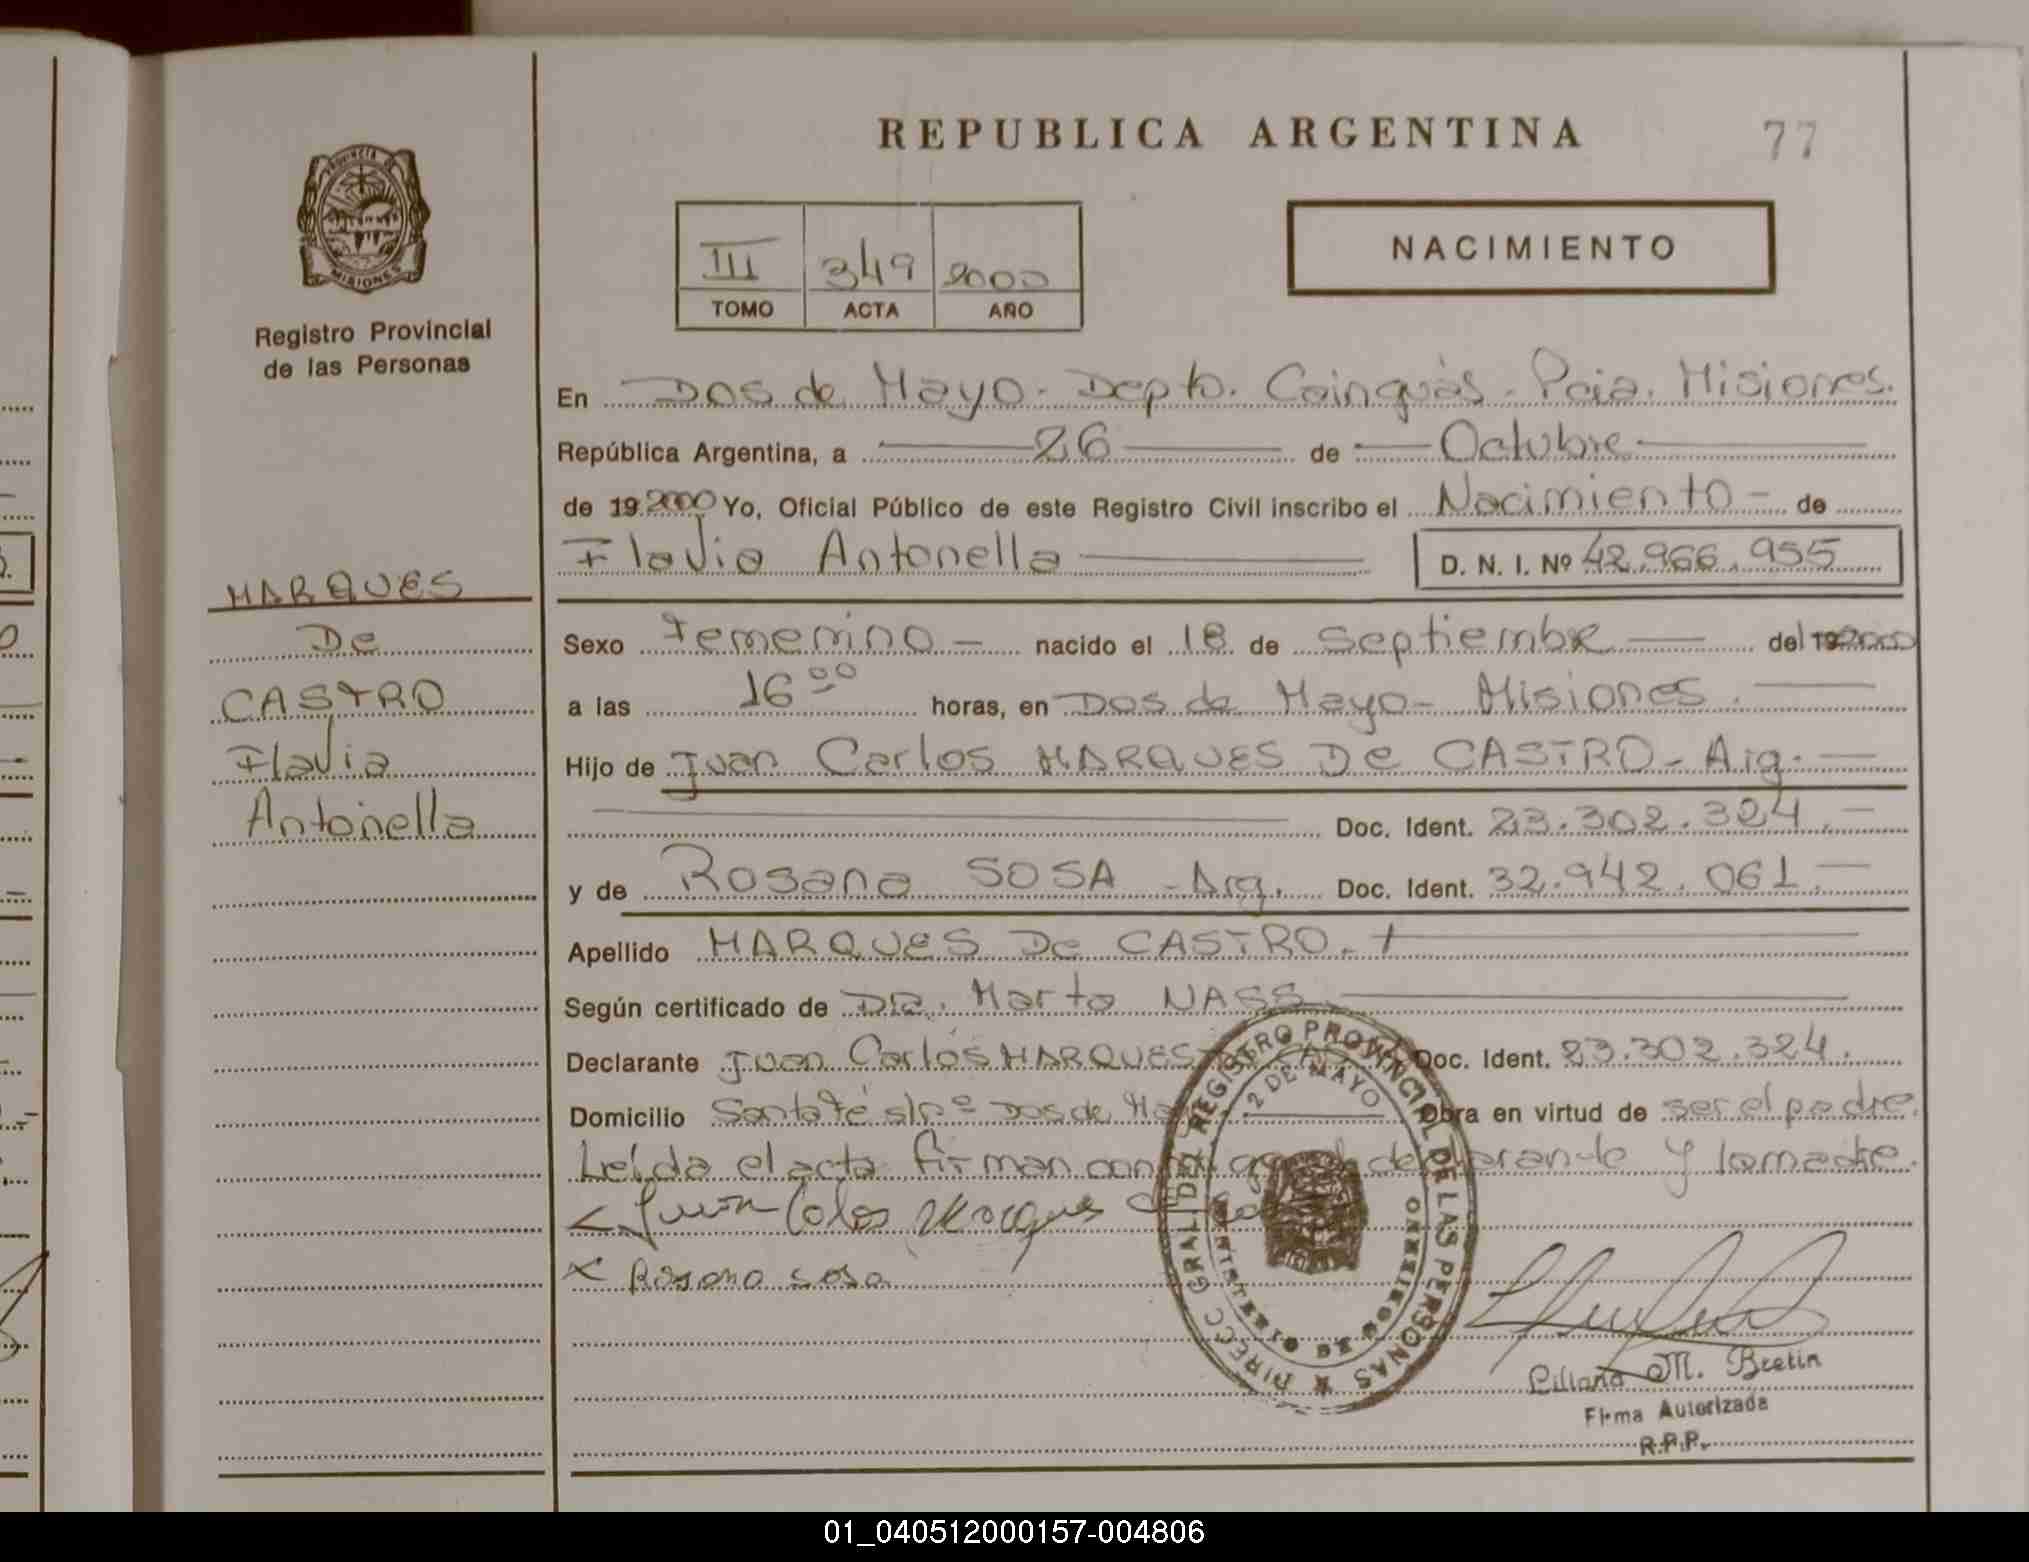 REPUBLICA ARGENTINA
77
PROVINCIA DE
MISIONES
Registro Provincial
de las Personas
III 349 2000
TOMO ACTA AÑO
NACIMIENTO
En Dos de Mayo. Depto. Cainguás. Pcia. Misiones.
República Argentina, a 26 de Octubre
de 19 2000 Yo, Oficial Público de este Registro Civil inscribo el Nacimiento - de
Flavia Antonella D. N. I. Nº 42.966.955
MARQUES
De
CASTRO
Flavia
Antonella
Sexo Femenino - nacido el 18 de Septiembre del 19 2000
a las 16 00 horas, en Dos de Mayo - Misiones.
Hijo de Juan Carlos MARQUES De CASTRO - Arg.
Doc. Ident. 23.302.324.-
y de Rosana SOSA - Arg. Doc. Ident. 32.942.061.-
Apellido MARQUES De CASTRO.-
Según certificado de Dra. Marta NASS
Declarante Juan Carlos MARQUES Doc. Ident. 23.302.324.
Domicilio Santa Fé s/nº Dos de Obra en virtud de ser el padre.
Leída el acta firman y la madre.
Juan
x Rosana sosa
DIRECC GRAL DEL REGISTRO PROVINCIAL DE LAS PERSONAS
2 DE MAYO
MINISTERIO DE GOBIERNO
Liliana M. Bretin
Firma Autorizada
R.P.P.
01_040512000157-004806